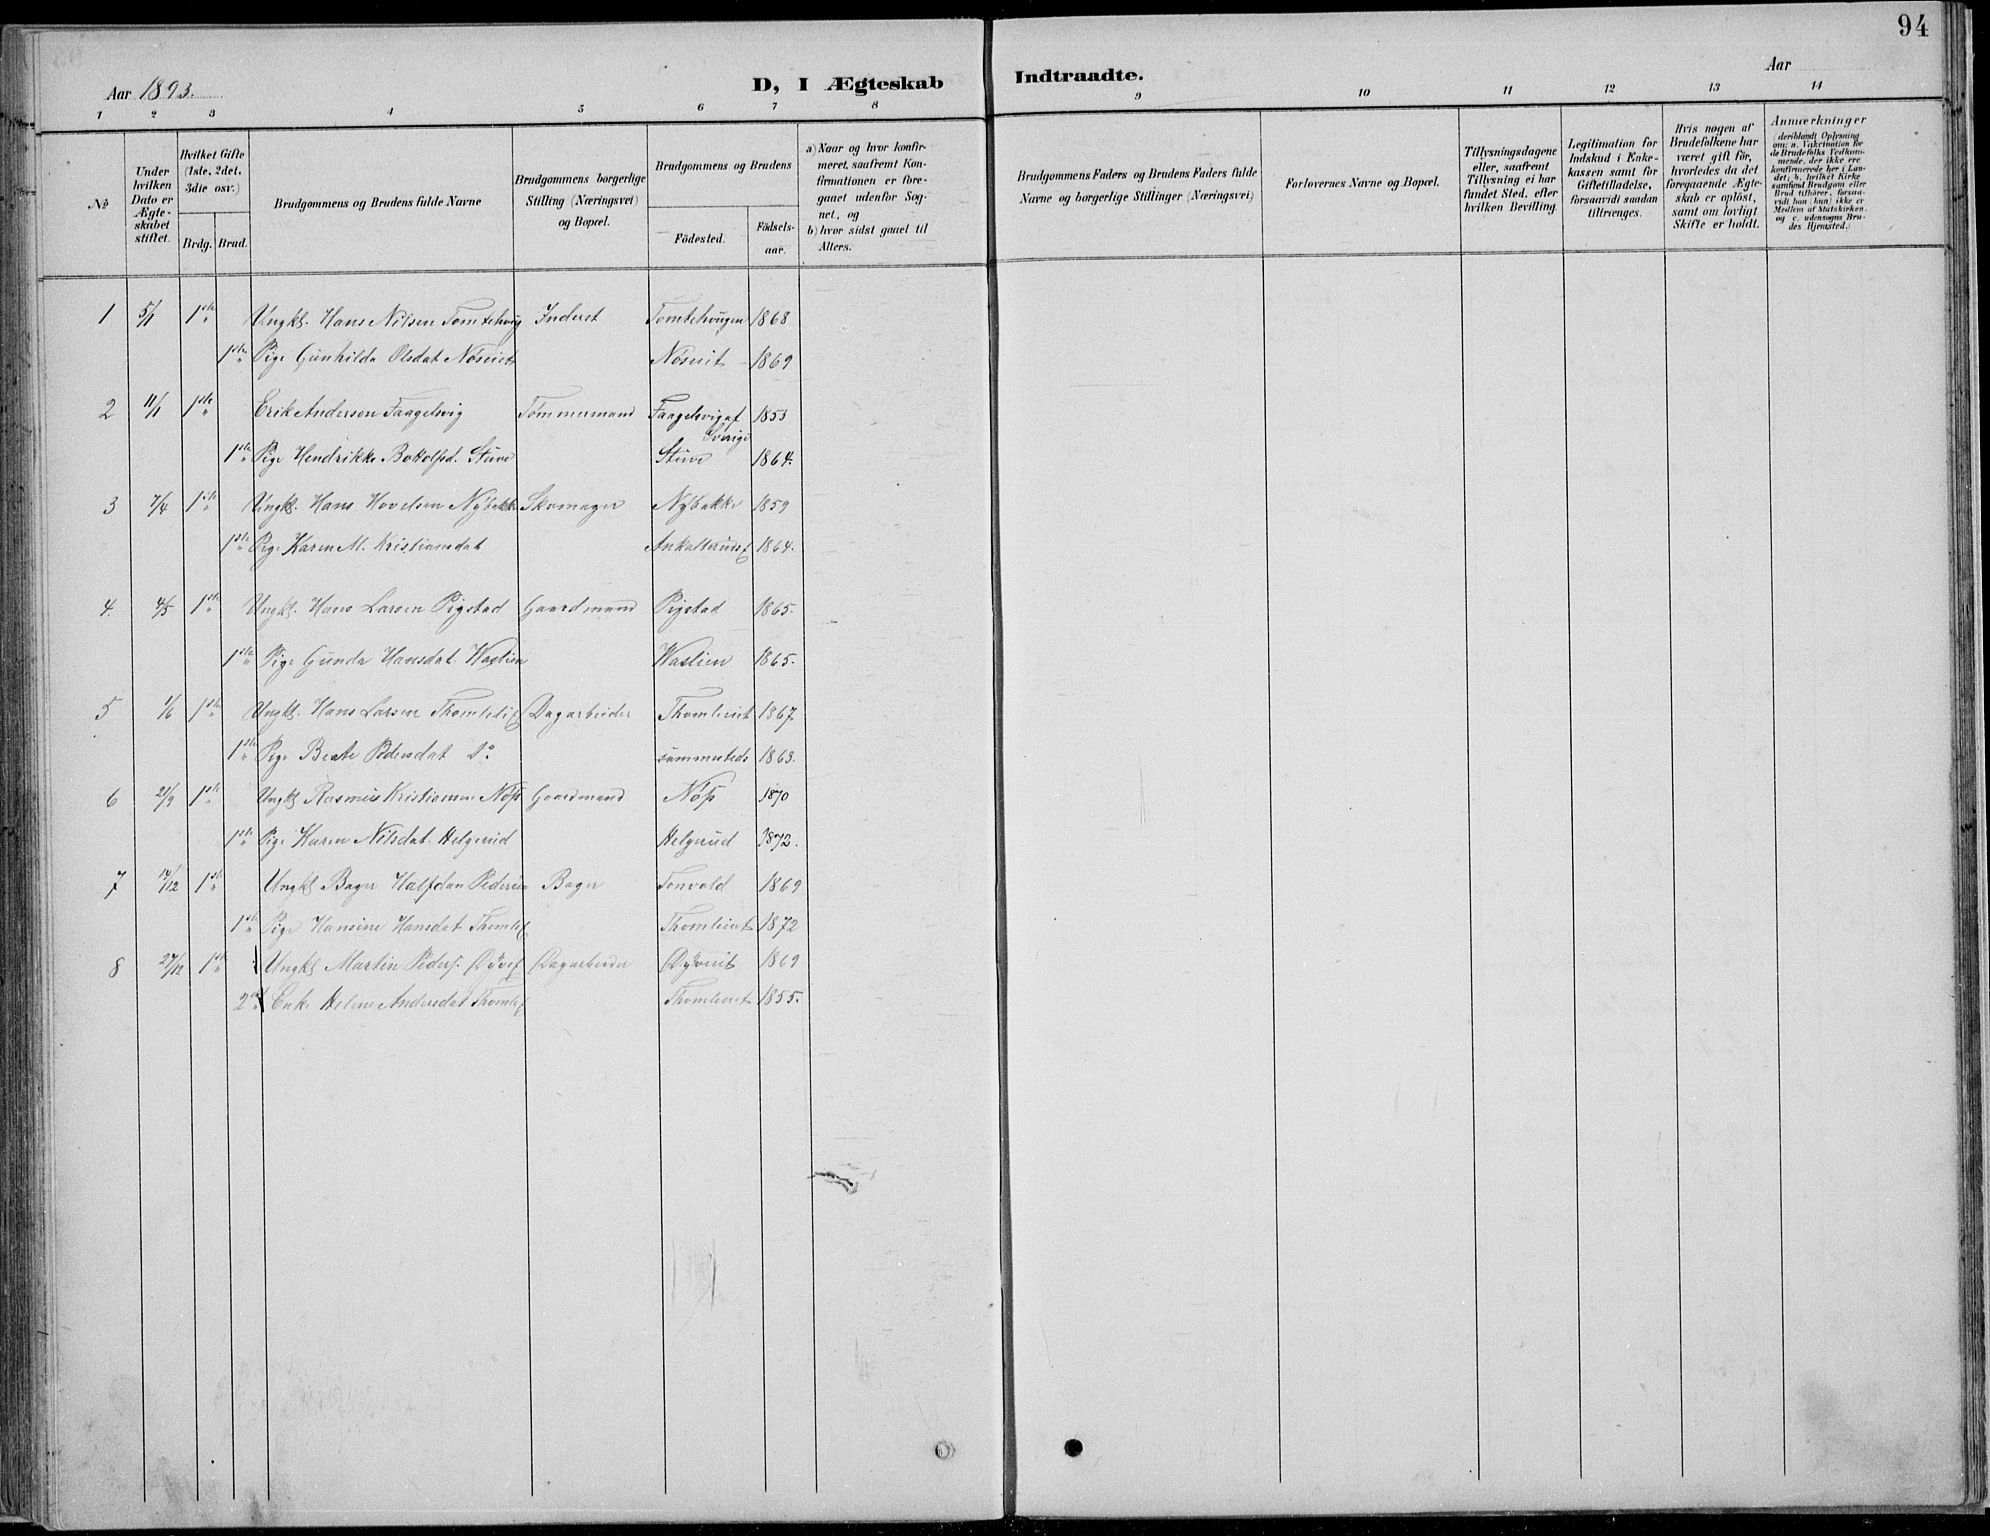 94
Aar 1893.
D, I Ægteskab Indtraadte.
Aar
1 2 3 4 5 6 7 8 9 10 11 12 13 14
No
Under hvilken Dato er Ægteskabet stiftet.
Hvilket Gifte (1ste, 2det, 3die osv.)
Brdg. Brud.
Brudgommens og Brudens fulde Navne
Brudgommens borgerlige Stilling (Næringsvei) og Bopæl.
Brudgommens og Brudens
Födested. Födsels-aar.
a) Naar og hvor konfirmeret, saafremt Konfirmationen er foregaaet udenfor Sognet, og
b) hvor sidst gaaet til Alters.
Brudgommens Faders og Brudens Faders fulde Navne og borgerlige Stillinger (Næringsvei)
Forlovernes Navne og Bopæl.
Tillysningsdagene eller, saafremt Tillysning ei har fundet Sted, efter hvilken Bevilling.
Legitimation for Indskud i Enkekassen samt for Giftetilladelse, forsaavidt saadan tiltrænges.
Hvis nogen af Brudefolkene har været gift för, hvorledes da det foregaaende Ægteskab er oplöst, samt om lovligt Skifte er holdt.
Anmærkninger
(deriblandt Oplysning om: a. Vaksination for de Brudefolks Vedkommende, der ikke ere konfirmerede her i Landet; b. hvilket Kirkesamfund Brudgom eller Brud tilhörer, forsaavidt han (hun) ikke er Medlem af Statskirken, og c. udensogns Brudes Hjemsted.)
1 5/1 1ste Ungkl. Hans Nilsen Tomtehoug Inderst Tomtehougen 1868
1ste Pige Gunhilda Olsdat Nösveit Nösveit 1869
2 11/1 1ste Erik Andersen Faagelsvig Tömmermand Faagelsvig af Sverige 1853
1ste Pige Hendrikke Bottolfsd. Stuve Stuve 1864.
3 7/4 1ste Ungkl. Hans Hovelsen Nÿbakke Skomager Nÿbakke 1859
1ste Pige Karen M. Kristiansdat 1864.
4. 4/5 1ste Ungkl. Hans Larsen Pigstad Gaardmand Pigstad 1865.
1ste Pige Gunda Hansdat Waslien Waslien 1865.
5 1/6 1ste Ungkl. Hans Larsen Dagarbeider 1867
1ste Pige Beate Pedersdat Do sammesteds 1863.
6 21/9 1ste Ungkl Rasmus Kristiansen Nöss Gaardmand Nöss 1870
1ste Pige Karen Nilsdat. Helgerud Helgerud 1872.
7 14/12 1ste Ungkl Bager Halfdan Pedersen Bager Tonvold 1869
1ste Pige Hansine Hansdat 1872
8 27/12 1ste Ungkl Martin Peders. Dagarbeider 1869
2det Enke Helene Andersdat 1855.